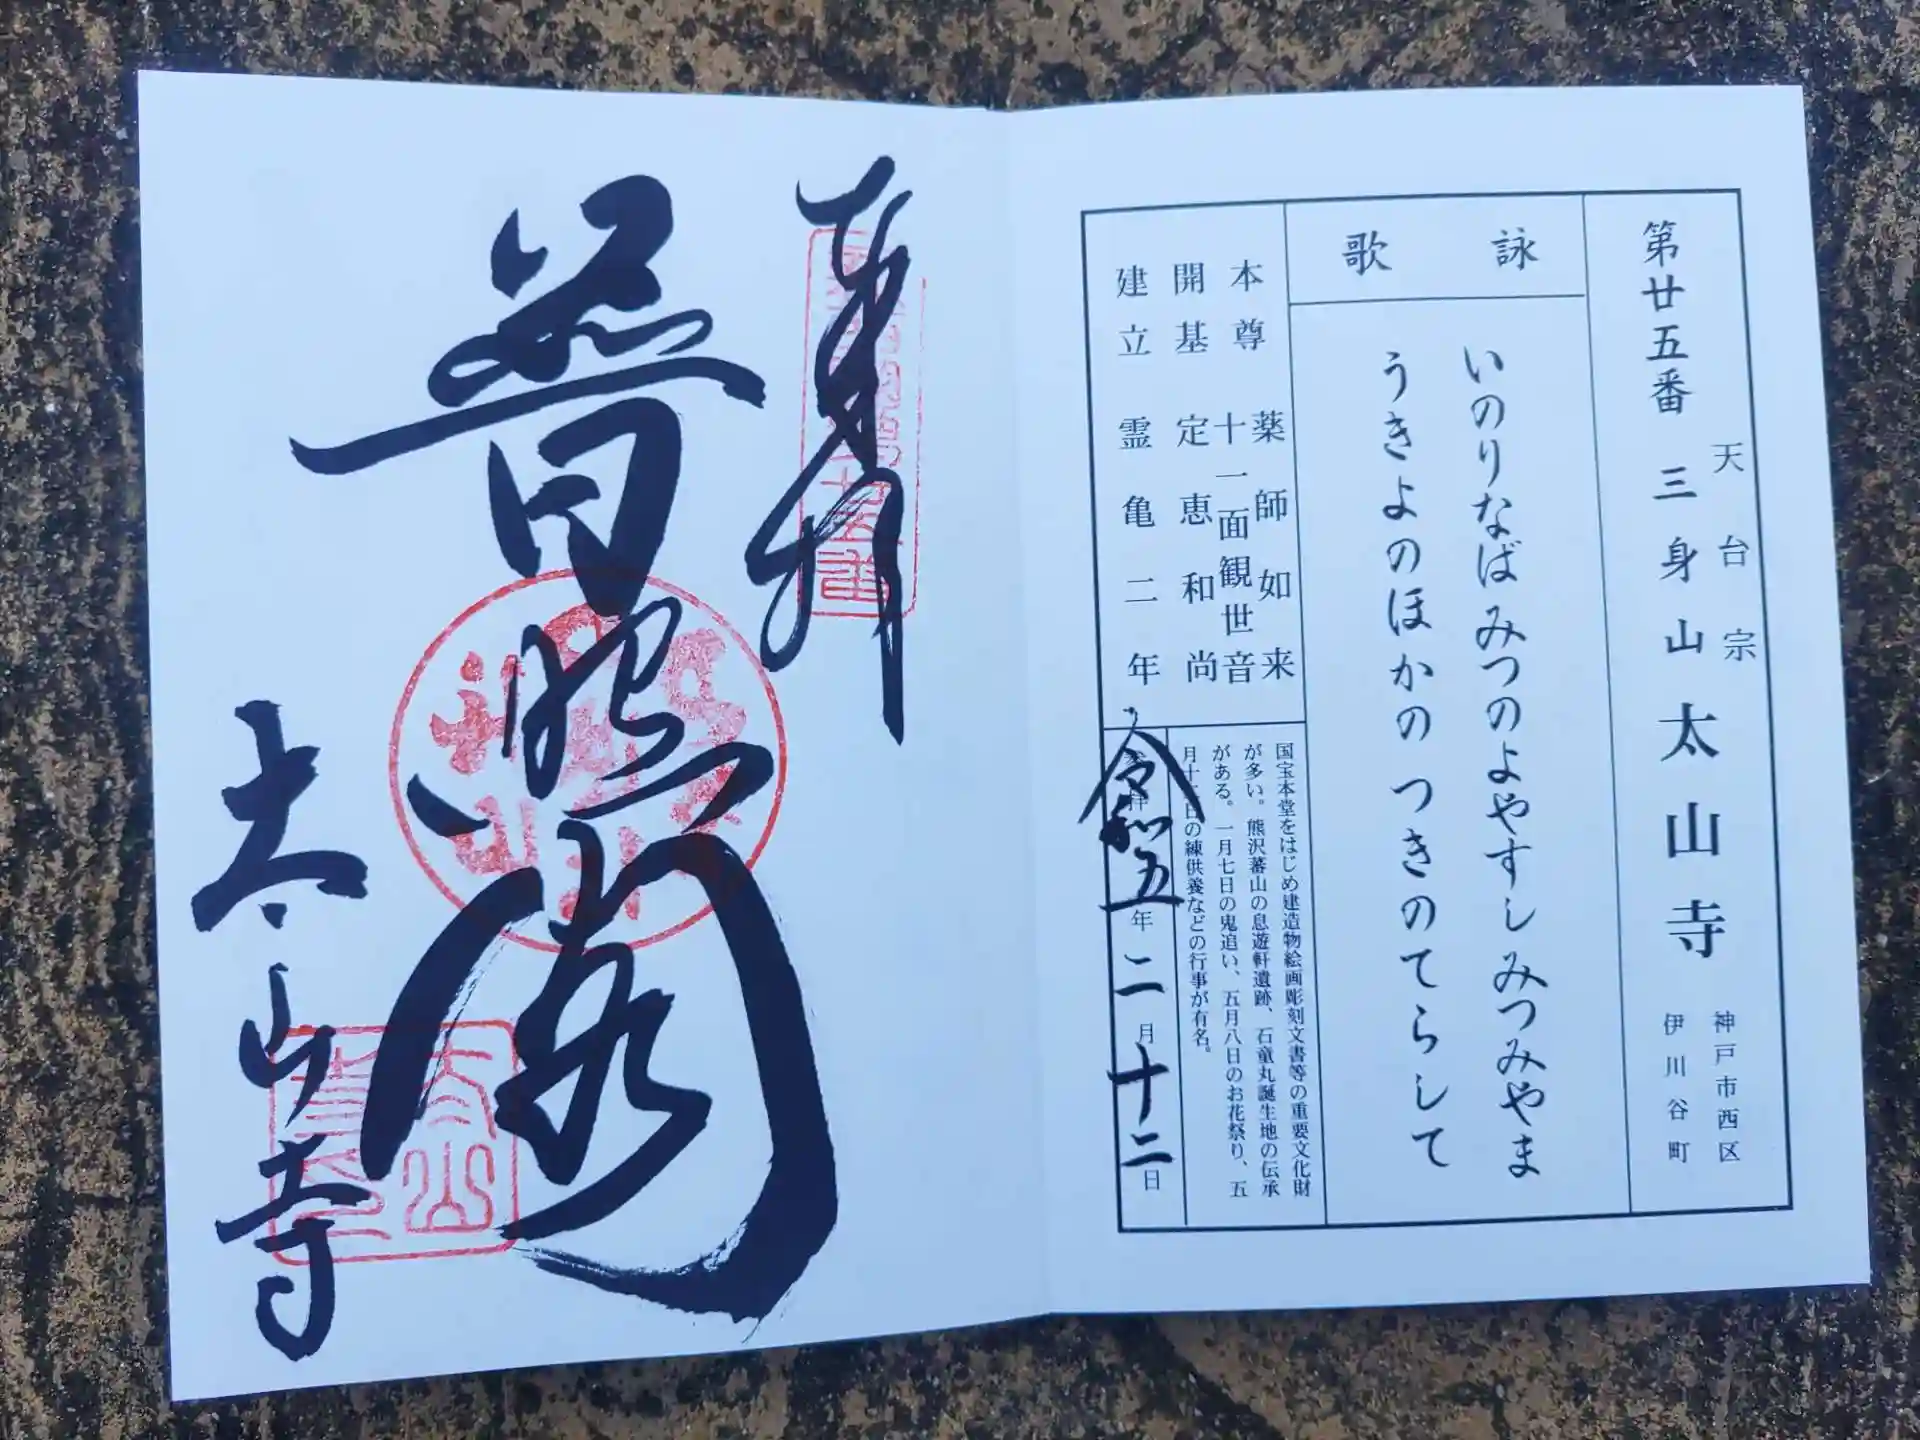 第廿五番 三身山 太山寺
天台宗
神戸市西区
伊川谷町
詠歌
いのりなばみつのよやすしみつみやま
うきよのほかのつきのてらして
本尊 薬師如来
十一面観世音
開基 定恵和尚
建立 霊亀二年
国宝本堂をはじめ建造物絵画彫刻文書等の重要文化財
が多い。熊沢蕃山の息遊軒遺跡、石童丸誕生地の伝承
がある。一月七日の鬼追い、五月八日のお花祭り、五
月十二日の練供養などの行事が有名。
令和五年二月十二日
奉拝
普照閣
太山寺